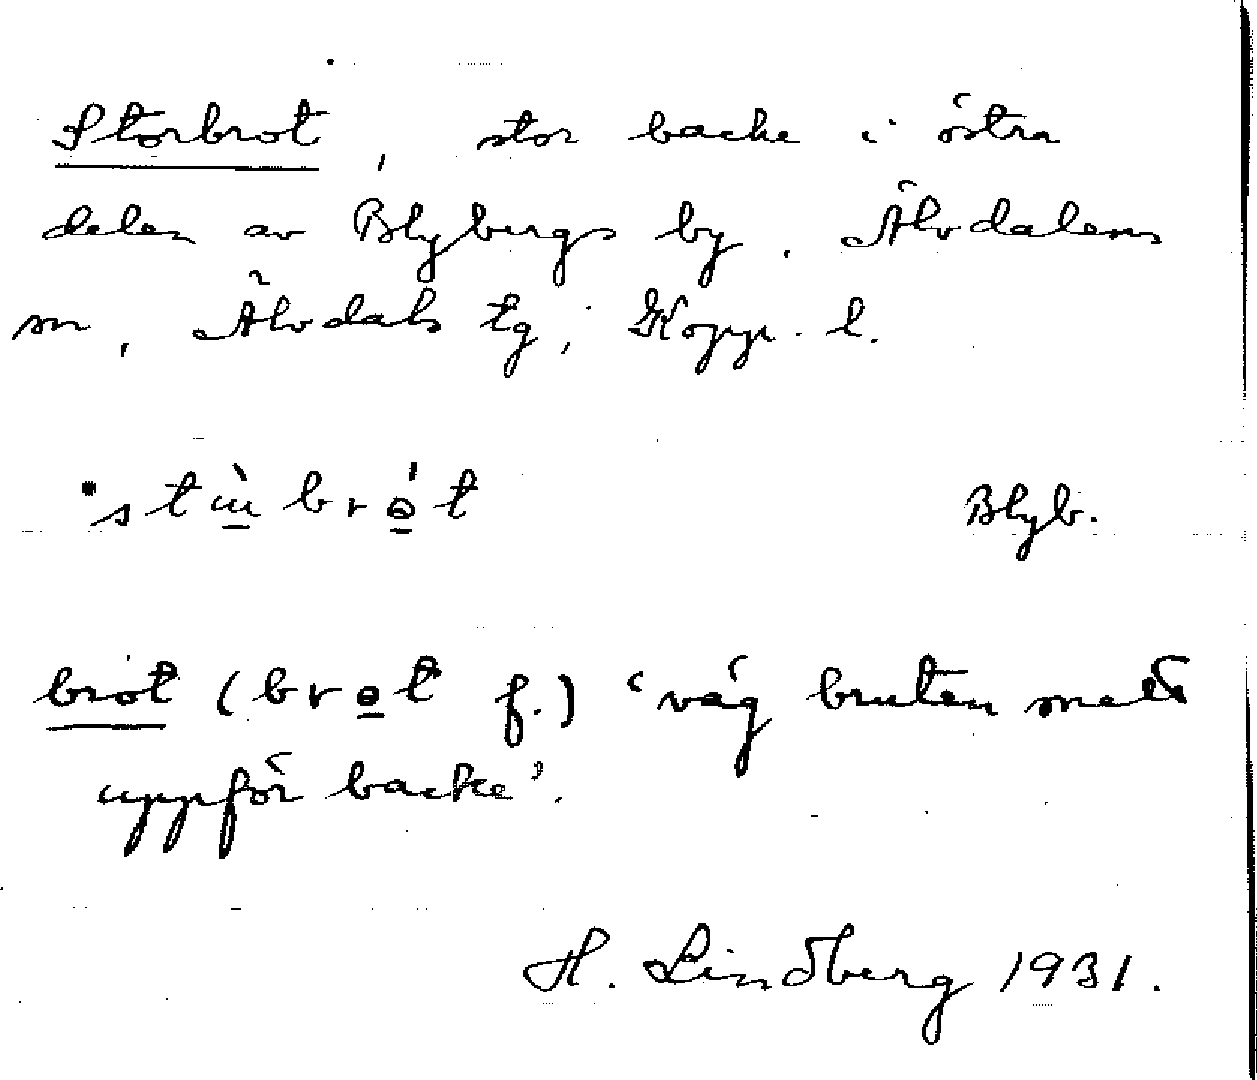 Storbrot, stor backe i östra
delen av Blybergs by. Älvdalens
sn, Älvdals tg, Kopp. l.
brət Blyb.
brot (brət f.) ‘väg bruten med
uppför backe’.
H. Lindberg 1931.